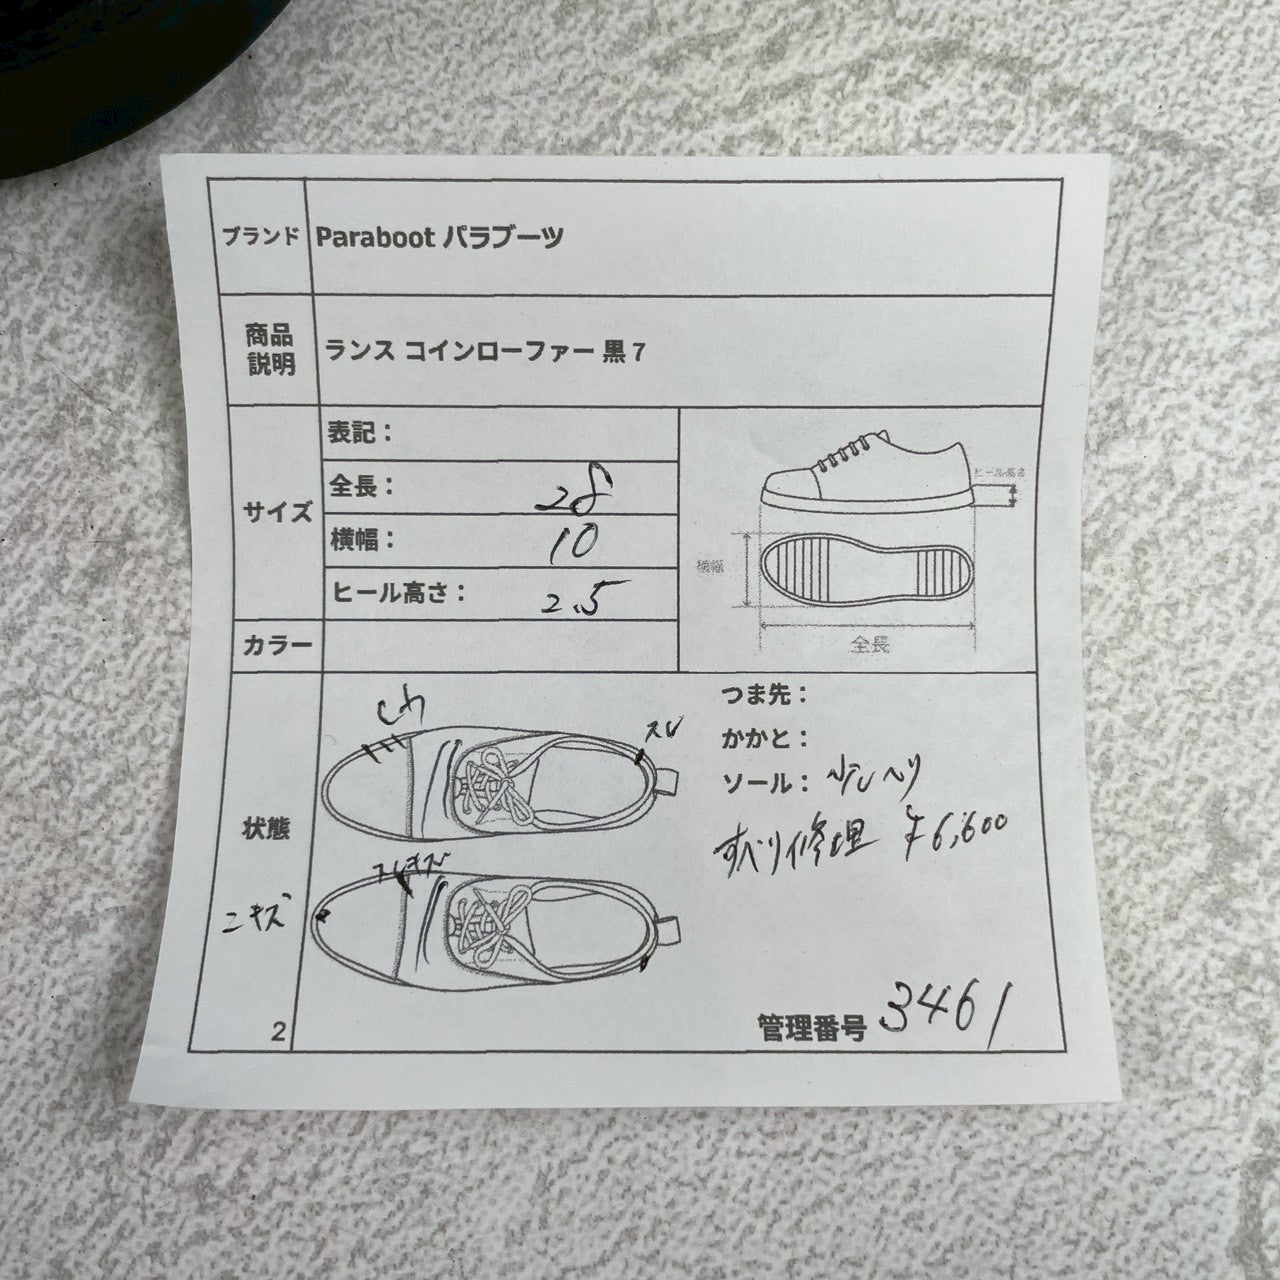 ブランド Paraboot パラブーツ
商品説明 ランス コインローファー 黒 7
サイズ
表記：
全長： 28
横幅： 10
ヒール高さ： 2.5
ヒール高さ
横幅
全長
カラー
状態
しわ
スレ
スレキズ
キズ
つま先：
かかと：
ソール： 少しヘリ
すべり修理 ¥6,600
2
管理番号 3461